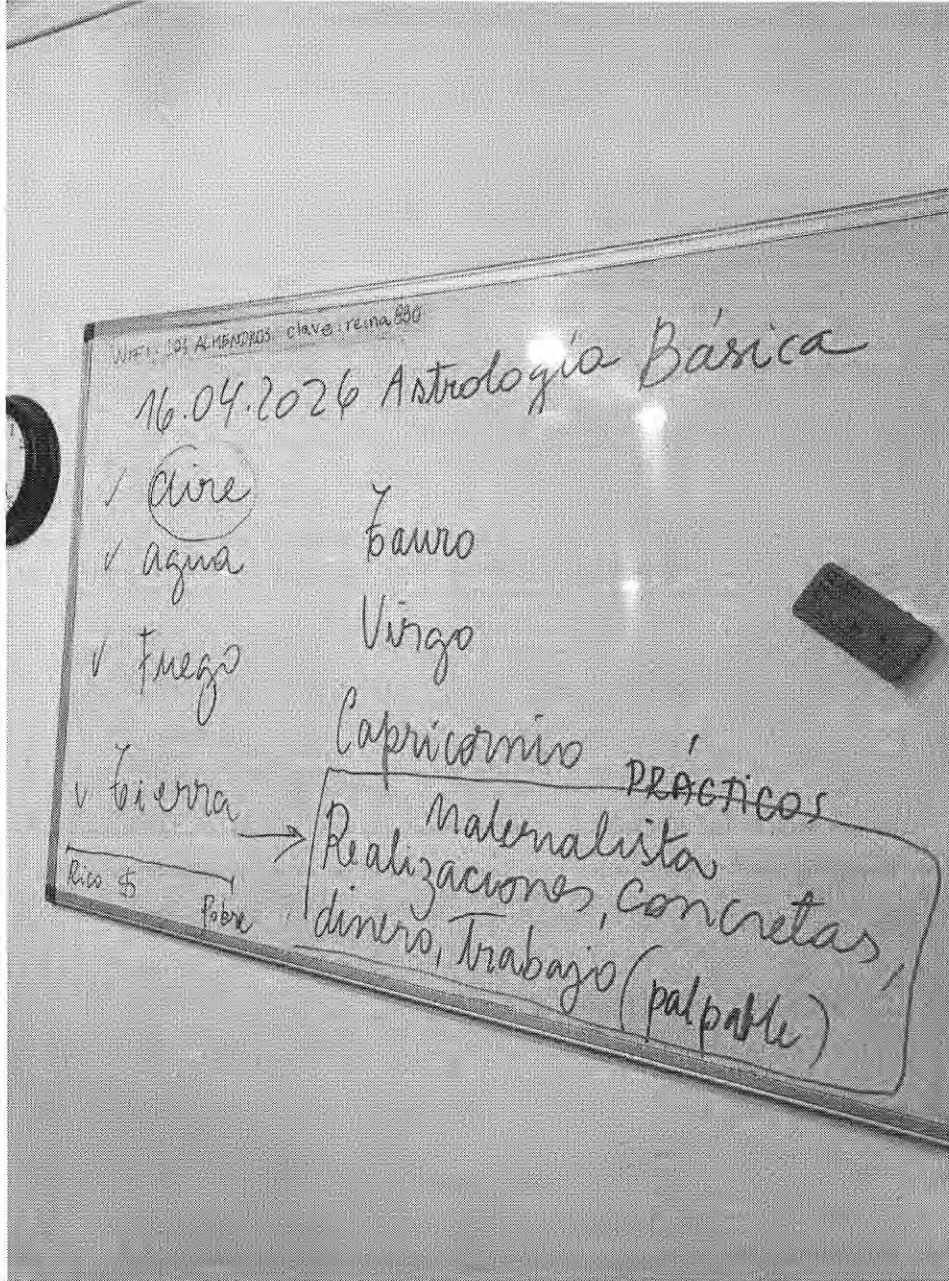 WIFI: LOS ALMENDROS clave: reina 890
16.04.2026 Astrología Básica
aire
agua
Fuego
tierra
Rico $
Pobre
Tauro
Virgo
Capricornio
PRÁCTICOS
Materialista
Realizaciones, concretas,
dinero, Trabajo (palpable)